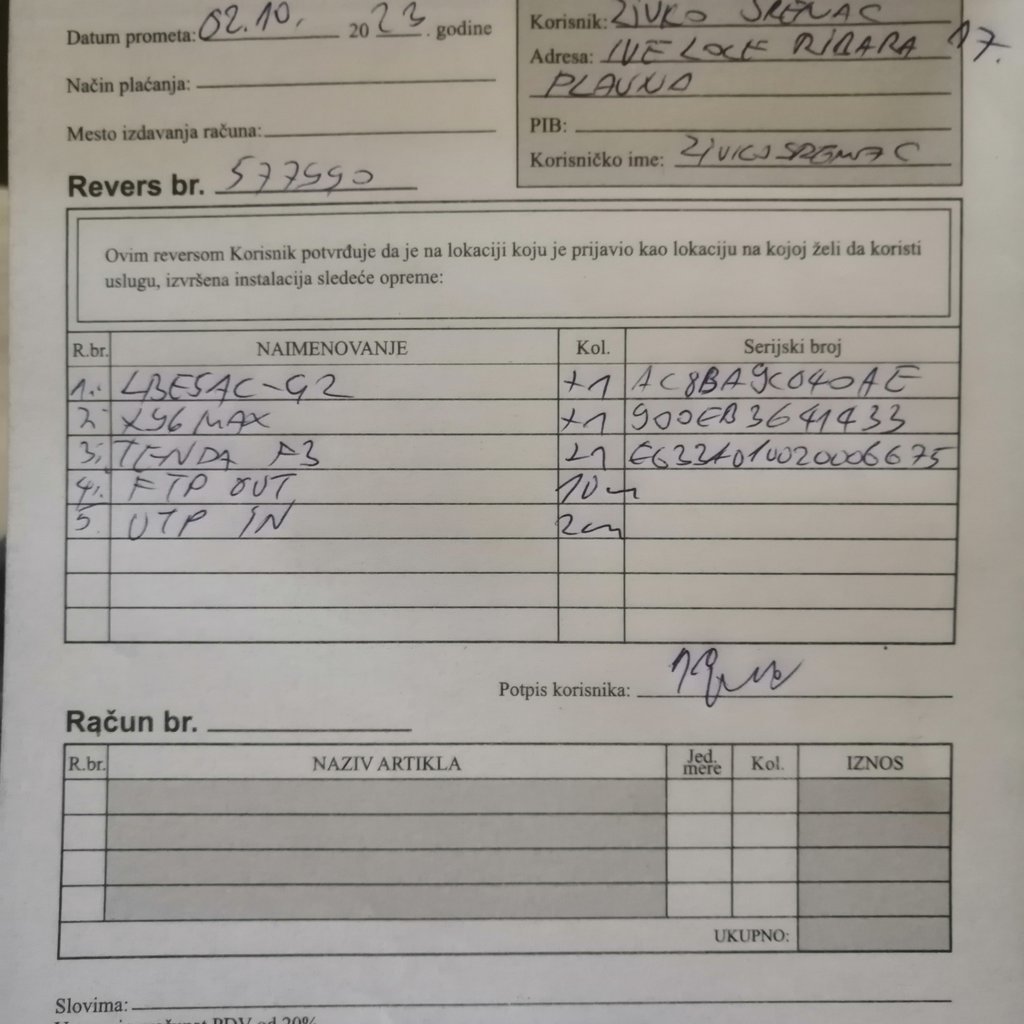 Datum prometa: 02.10. 2023. godine
Način plaćanja:
Mesto izdavanja računa:
Korisnik: ŽIVKO SREMAC
Adresa: IVE LOLE RIBARA 17.
PLAVNA
PIB:
Korisničko ime: ŽIVKOSREMAC
Revers br. 577990
Ovim reversom Korisnik potvrđuje da je na lokaciji koju je prijavio kao lokaciju na kojoj želi da koristi
uslugu, izvršena instalacija sledeće opreme:
R.br. NAIMENOVANJE Kol. Serijski broj
1. LBE5AC-G2 +1 AC8BA9C040AE
2. X96 MAX +1 900EB3641433
3. TENDA F3 +1 E6334010020006675
4. FTP OUT 10m
5. UTP IN 2m
Potpis korisnika:
Račun br.
R.br. NAZIV ARTIKLA Jed. mere Kol. IZNOS
UKUPNO:
Slovima: